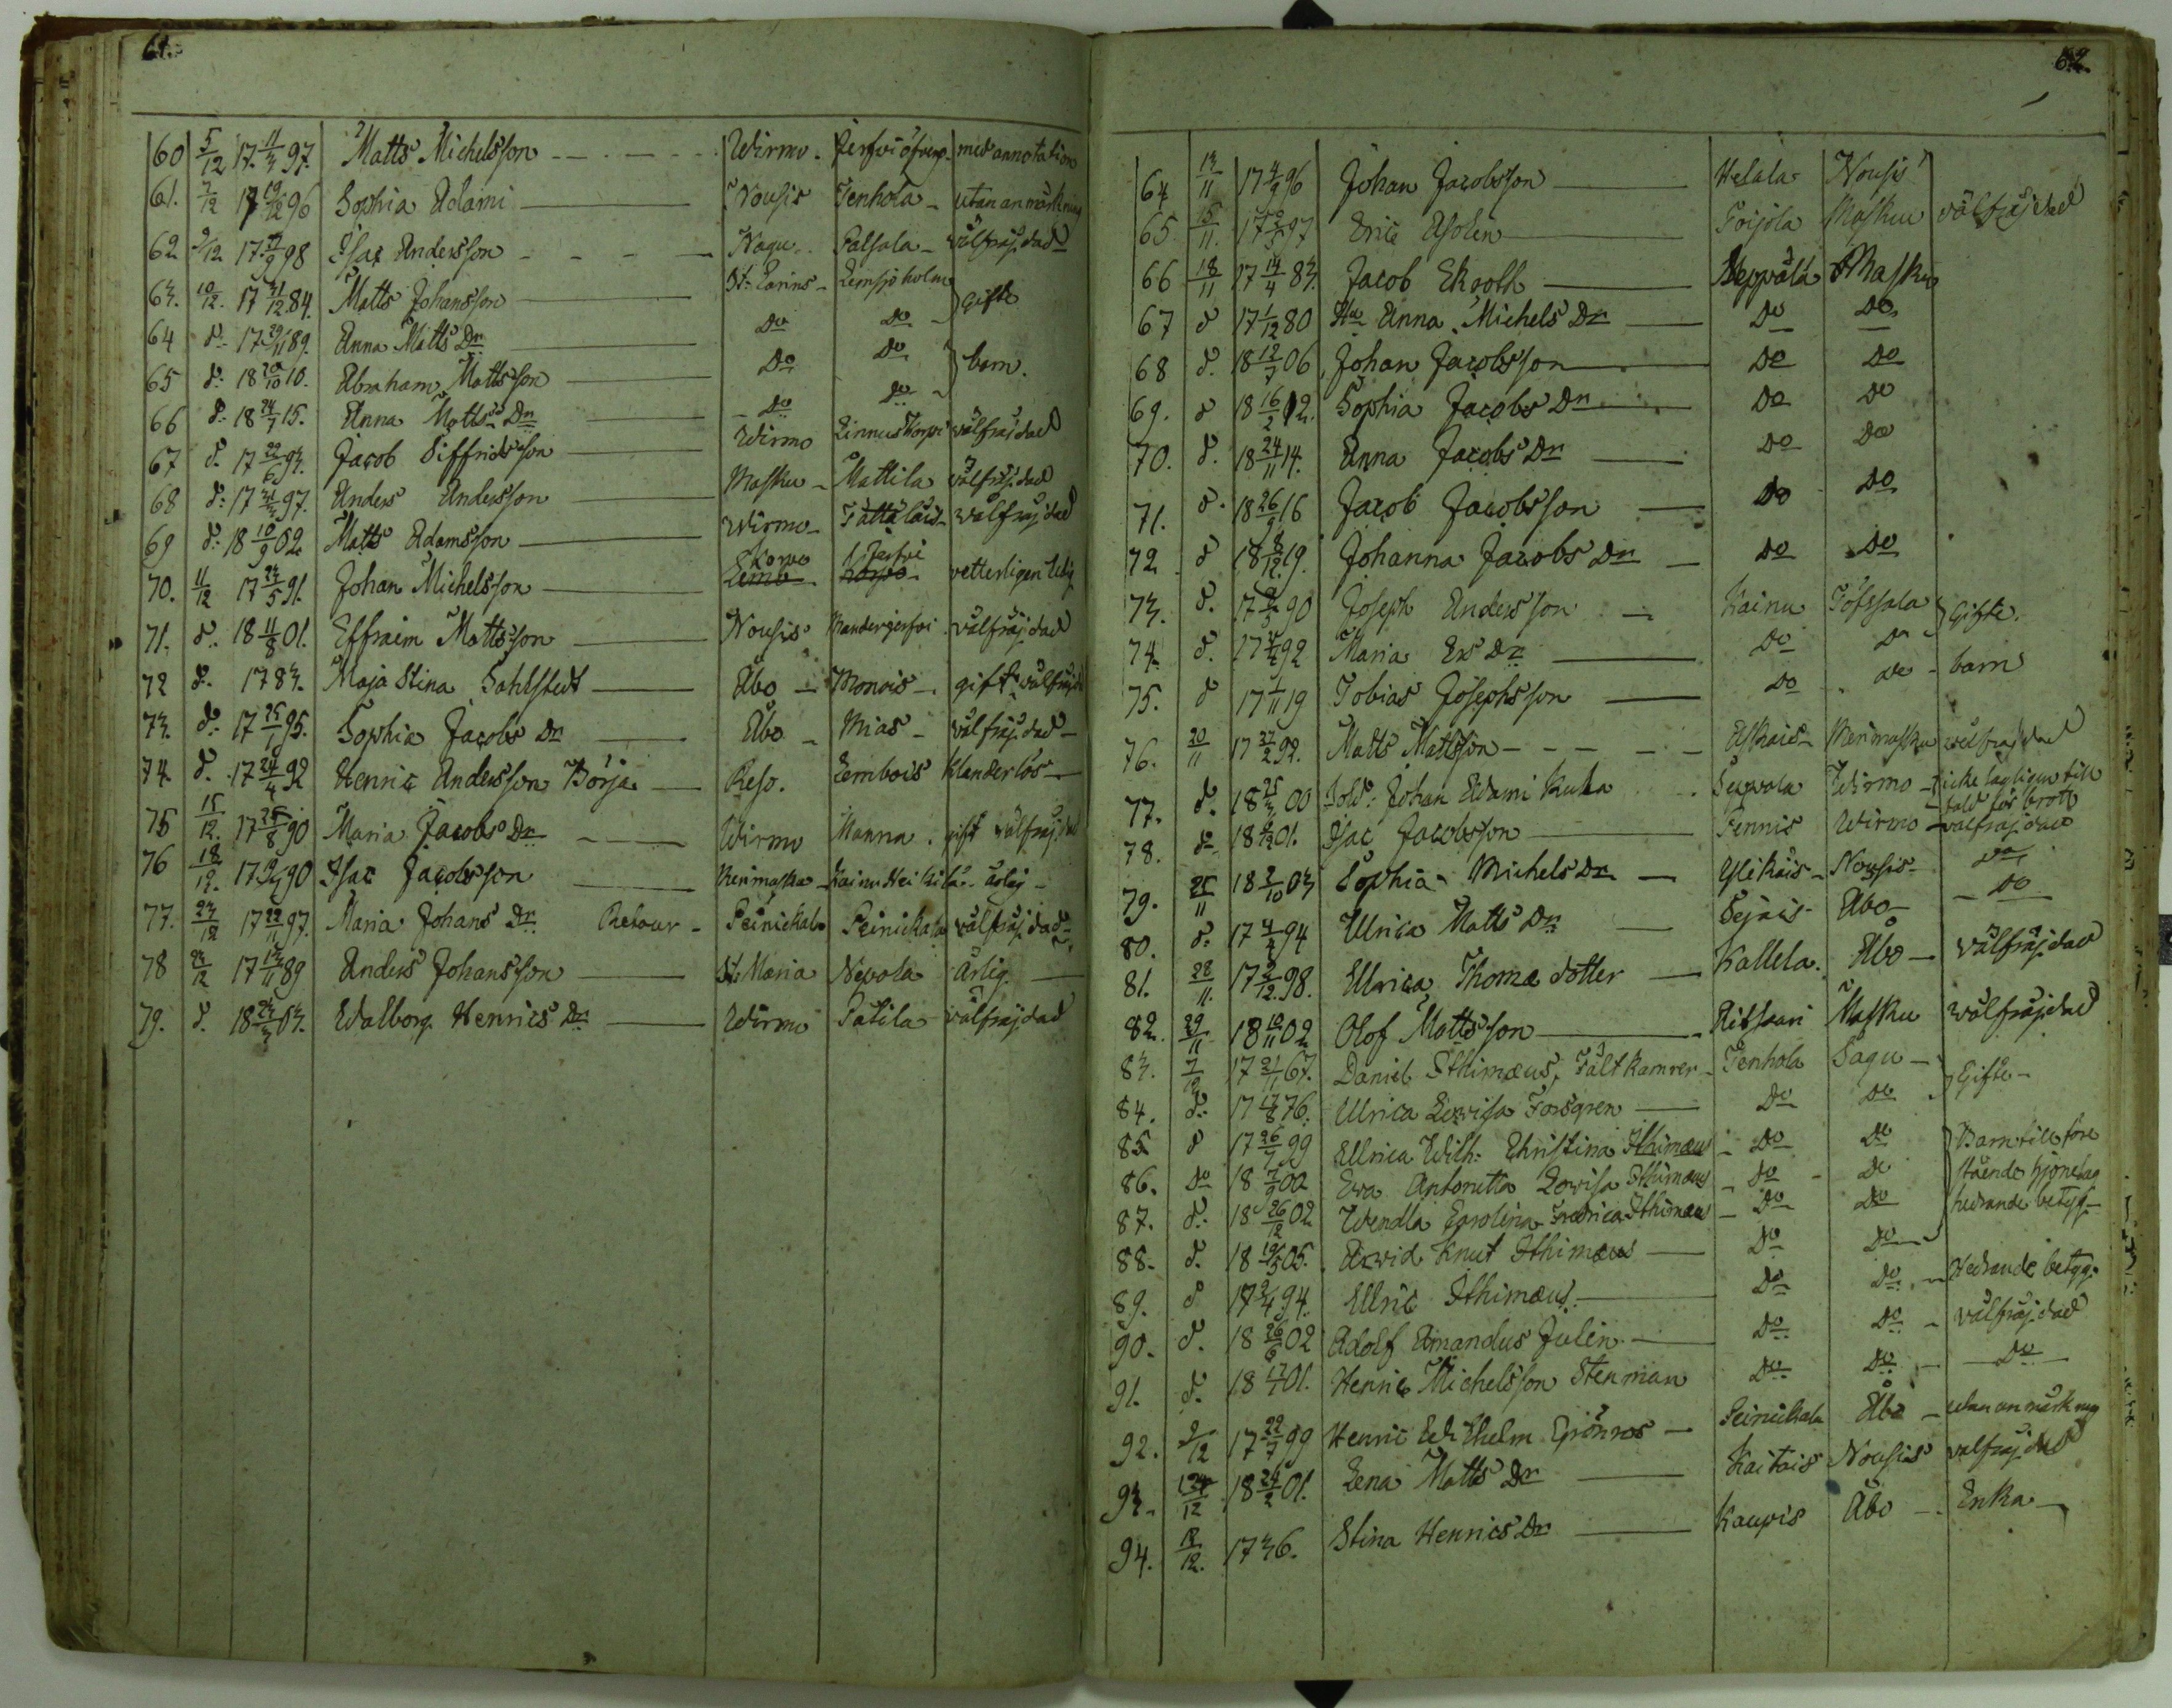 61.
60 5/12 17 11/3 97. Matts Michelsson Wirmo. med annotation
61. 7/12 17 19/12 96 Sophia Adami Nousis Tenhola utan anmärkning
62 9/12 17 98 Isac Andersson Nagu Palsala välfräjdad
63. 10/12. 17 31/12 84. Matts Johansson St. Carins Lemsjöholm Gifte
64 d. 17 29/11 89. Anna Matts Dr Do Do
65 d: 18 20/10 10. Abraham Mattsson Do Do barn.
66 d: 18 24/7 15. Anna Matts Dr Do Do
67 d. 17 22/6 93. Jacob Siffridsson Wirmo välfräjdad
68 d: 17 97. Anders Andersson Masku Mattila välfräjdad
69 d: 18 10/9 02 Matts Adamsson Wirmo välfräjdad
70. 11/12 17 23/5 91. Johan Michelsson Korpo
71. d. 18 11/8 01. Effraim Mattsson Nousis välfräjdad
72 d. 1783. Maja Stina Sahlstedt Åbo Monois gift välfräjd
73. d. 17 25/1 95. Sophia Jacobs Dr Åbo Mias välfräjdad
74. d. 17 24/4 92 Henric Andersson Börja Reso. Lembois Klanderlös
75 15/12. 17 25/8 90 Maria Jacobs Dr Wirmo Nanna. gift välfräjdad
76 18/12. 17 90 Isac Jacobsson Merimasku Kainu Heikilä ärlig
77. 23/12 17 22/11 97. Maria Johans Dr Retour Peinickala Peinickala välfräjdad
78 23/12 17 13/11 89 Anders Johansson St. Maria Nepola Ärlig
79. d. 18 23/3 03. Walborg Henrics Dr Wirmo Patila välfräjdad
62.
64 13/11 17 4/9 96 Johan Jacobsson Helala Nousis
65 15/11. 17 97 Eric Asolin Poijola Masku välfräjdad
66 18/11 17 14/4 83. Jacob Ekroth Seppälä Masku
67 d 17 1/12 80 Hu Anna Michels Dr Do Do
68 d. 18 12/7 06 Johan Jacobsson Do Do
69. d 18 16/2 12. Sophia Jacobs Dr Do Do
70. d. 18 24/11 14. Anna Jacobs Dr Do Do
71. d. 18 26/9 16 Jacob Jacobsson Do Do
72 d 18 8/12 19. Johanna Jacobs Dr Do Do
73. d. 17 90 Joseph Andersson Kainu Töfsala Gifte.
74. d. 17 92 Maria Ers Dr Do D
75. d 17 1/11 19 Tobias Josephsson Do Do barn
76. 20/11 17 27/2 92. Matts Mattsson Askais Merimasku välfräjdad
77. d. 18 25/3 00 Sold: Johan Adami Kuha Wirmo icke lagligen till
tald för brott
78. d 18 01. Isac Jacobsson Tennis Wirmo välfräjdad
79. 25/11 18 2/10 03 Sophia Michels Dr Ylikäis Nousis Do
80. d. 17 94 Ulrica Matts Dr Sejais Åbo Do
81. 28/11. 17 2/12. 98. Ullrica Thomæ dotter Kallela. Åbo välfräjdad
82. 29/11 18 10/11 02 Olof Mattsson Ritsaari Masku välfräjdad
83. 7/12 17 67. Daniel Ithimæus, Fältkamrer Tenhola Sagu Gifte
84. d. 17 17/8 76. Ulrica Lovisa Forsgren Do Do
85 d 17 26/7 99 Ullrica Wilh: Christina Ithimæus Do Do Barn till före
86. Do 18 7/9 00 Eva Antonetta Lovisa Ithimæus Do Do stående hjonelag
87. d. 18 26/12 02 Wendla Carolina Fredrica Ithimæus Do Do hedrande betyg
88. d. 18 19/5 05. Arvid Knut Ithimæus Do Do
89. d 17 94. Ulric Ithimæus. Do Do Hedrande betyg.
90. d. 18 26/6 02 Adolf Amandus Julin Do Do välfräjdad
91. d. 18 17/1 01. Henric Michelsson Stenman Do Do Do
92. 9/12 17 22/7 99 Henric Wilhelm Grönroos Peinickala Åbo utan anmärkning
93. 12/12 18 24/2 01. Lena Matts Dr Kaitais Nousis välfräjdad
94. 12/12. 1736. Stina Henrics Dr Kaupis Åbo Enka